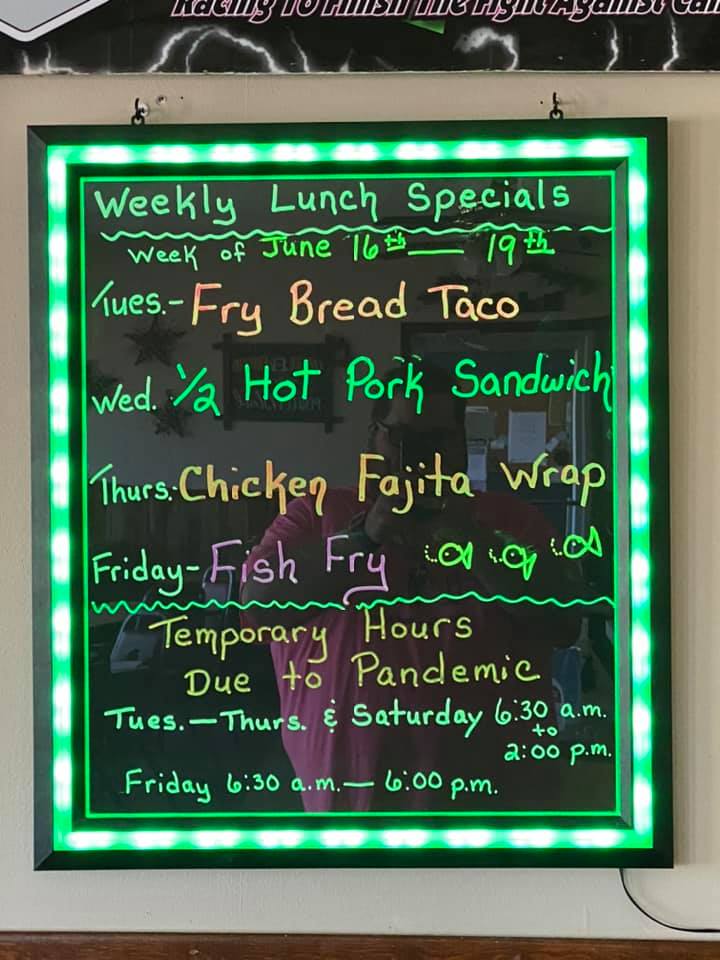 Racing To Finish The Fight Against
Weekly Lunch Specials
Week of June 16th — 19th
Tues.- Fry Bread Taco
Wed. 1/2 Hot Pork Sandwich
Thurs.- Chicken Fajita Wrap
Friday- Fish Fry
Temporary Hours
Due to Pandemic
Tues. - Thurs. & Saturday 6:30 a.m.
to
2:00 p.m.
Friday 6:30 a.m. - 6:00 p.m.